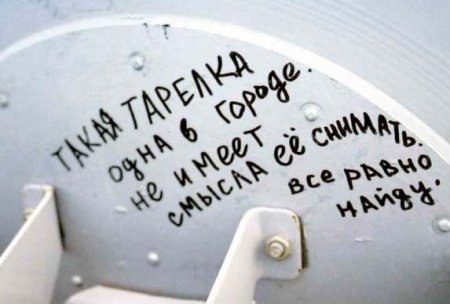 ТАКАЯ ТАРЕЛКА
одна в городе.
не имеет
смысла её снимать.
все равно
найду.